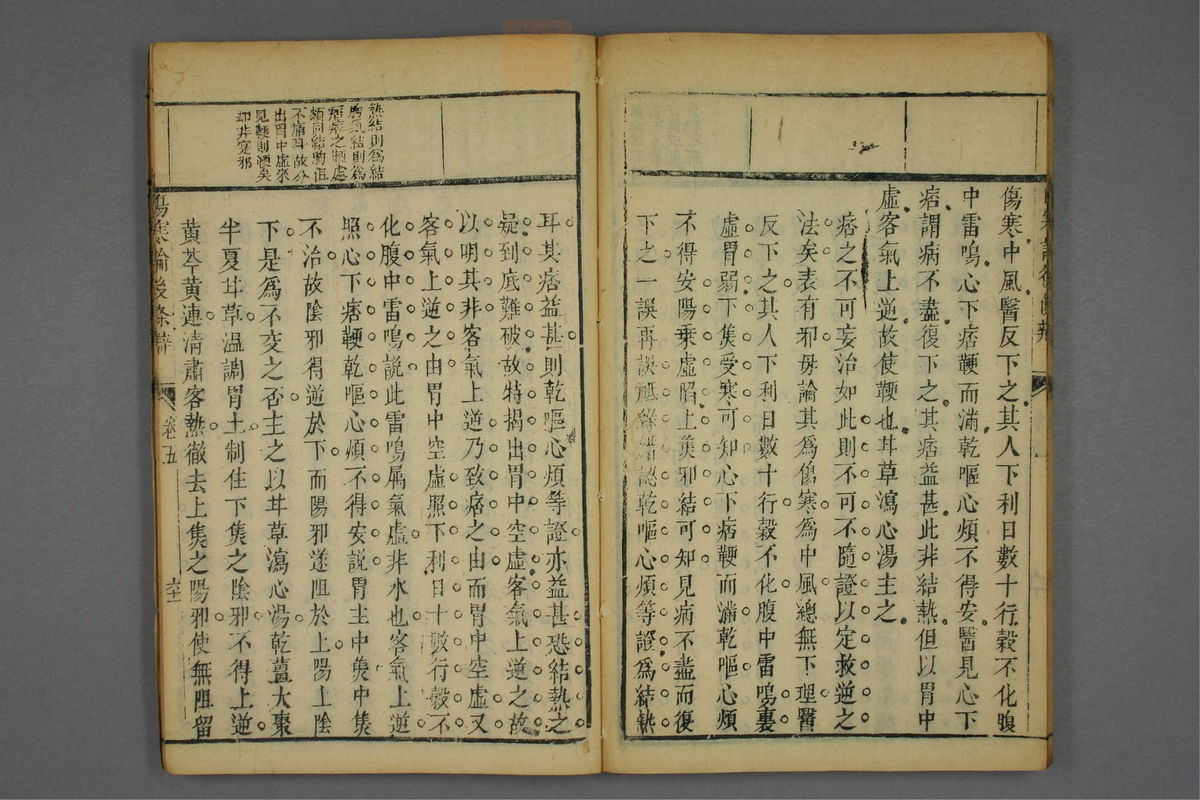 傷寒中風醫反下之其人下利日數十行穀不化腹
中雷鳴心下痞鞕而滿乾嘔心煩不得安醫見心下
痞謂病不盡復下之其痞益甚此非結熱但以胃中
虛客氣上逆故使鞕也甘草瀉心湯主之
痞之不可妄治如此則不可不隨證以定救逆之
法矣表有邪毋論其爲傷寒爲中風總無下理醫
反下之其人下利日數十行穀不化腹中雷鳴裏
虛胃弱下焦受寒可知心下痞鞕而滿乾嘔心煩
不得安陽乗虛陷上焦邪結可知見病不盡而復
下之一誤再誤認乾嘔心煩等證爲結熱
熱結則爲結
胸氣結則爲
痞痞之鞕處
頗同結胸但
不痛耳故分
出胃中虛來
見鞕則鞕矣
却非寔邪
耳其痞益甚則乾嘔心煩等證亦益甚恐結熱之
疑到底難破故特揭出胃中空虛客氣上逆之故
以明其非客氣上逆乃致痞之由而胃中空虛又
客氣上逆之由胃中空虛照下利日十數行穀不
化腹中雷鳴說此雷鳴属氣虛非水也客氣上逆
照心下痞鞕乾嘔心煩不得安說胃主中焦中焦
不治故陰邪得逆於下而陽邪遂阻於上陽上陰
下是爲不交之否主之以甘草瀉心湯乾薑大棗
半夏甘草温調胃土制住下焦之陰邪不得上逆
黄芩黄連清肅客熱徹去上焦之陽邪使無阻留
傷寒論後條辯
卷五
六十一